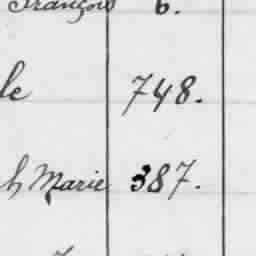 François 6.
le 748.
h Marie 387.